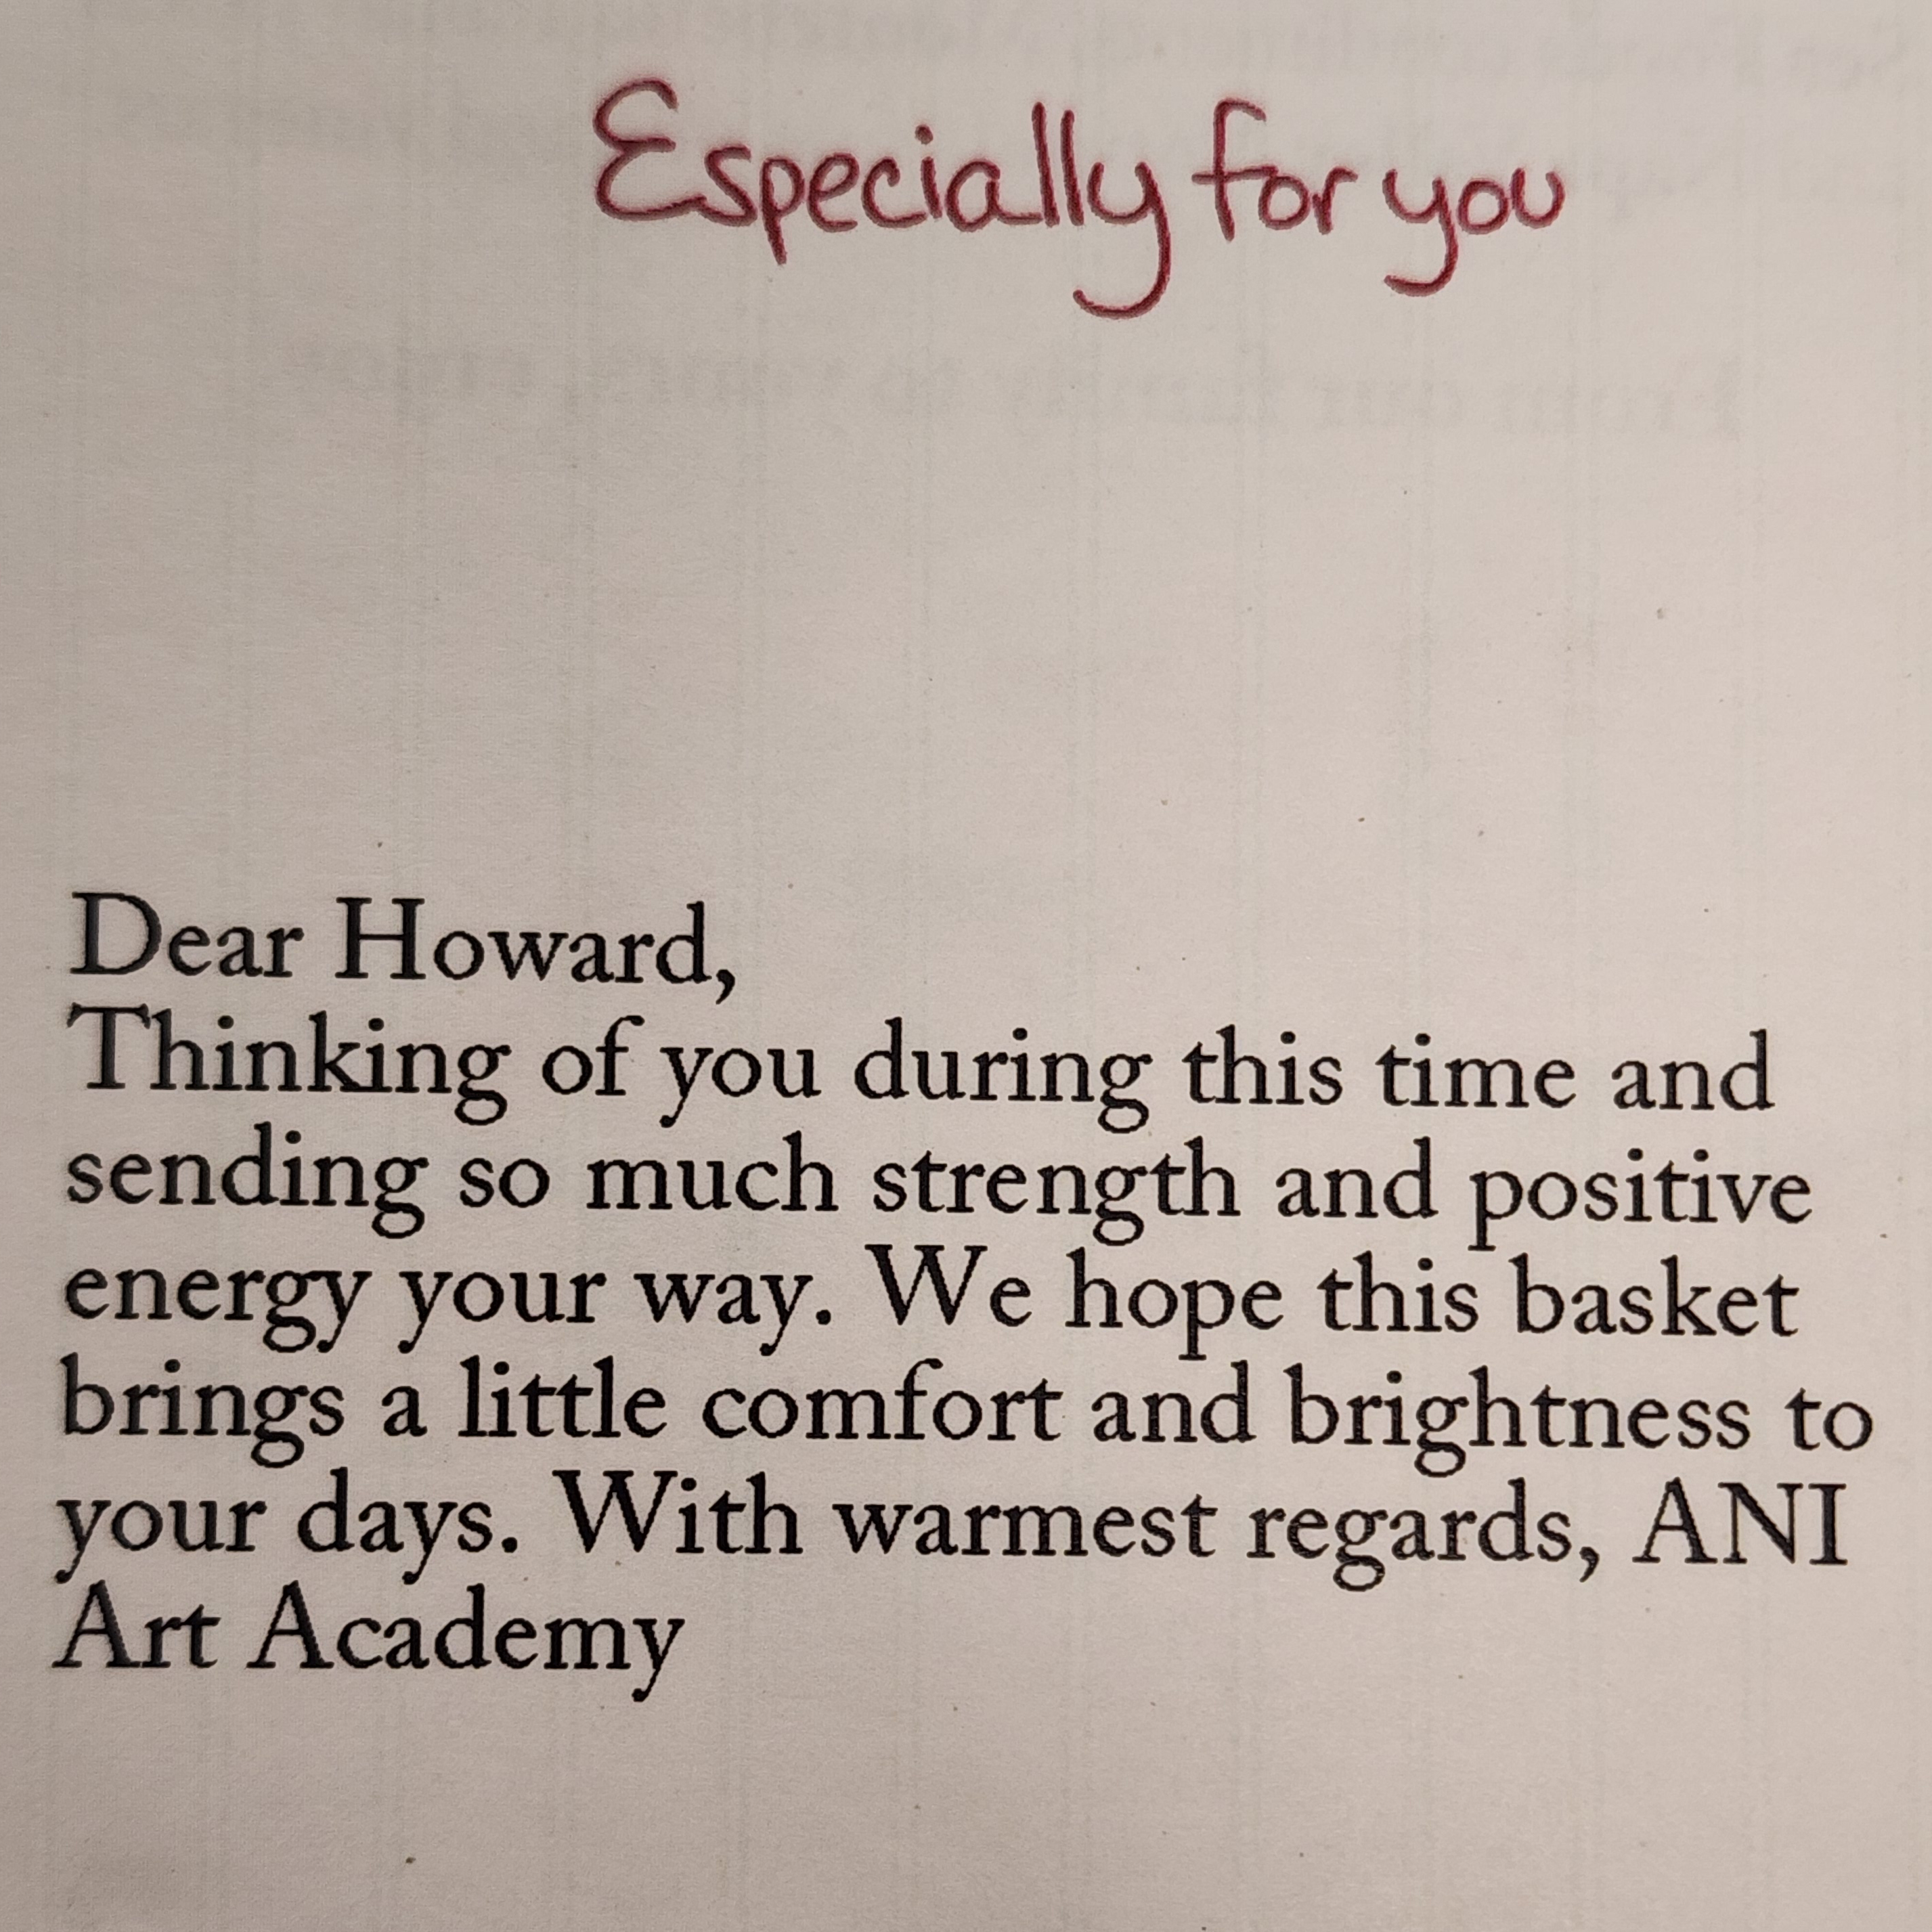 Especially for you
Dear Howard,
Thinking of you during this time and
sending so much strength and positive
energy your way. We hope this basket
brings a little comfort and brightness to
your days. With warmest regards, ANI
Art Academy